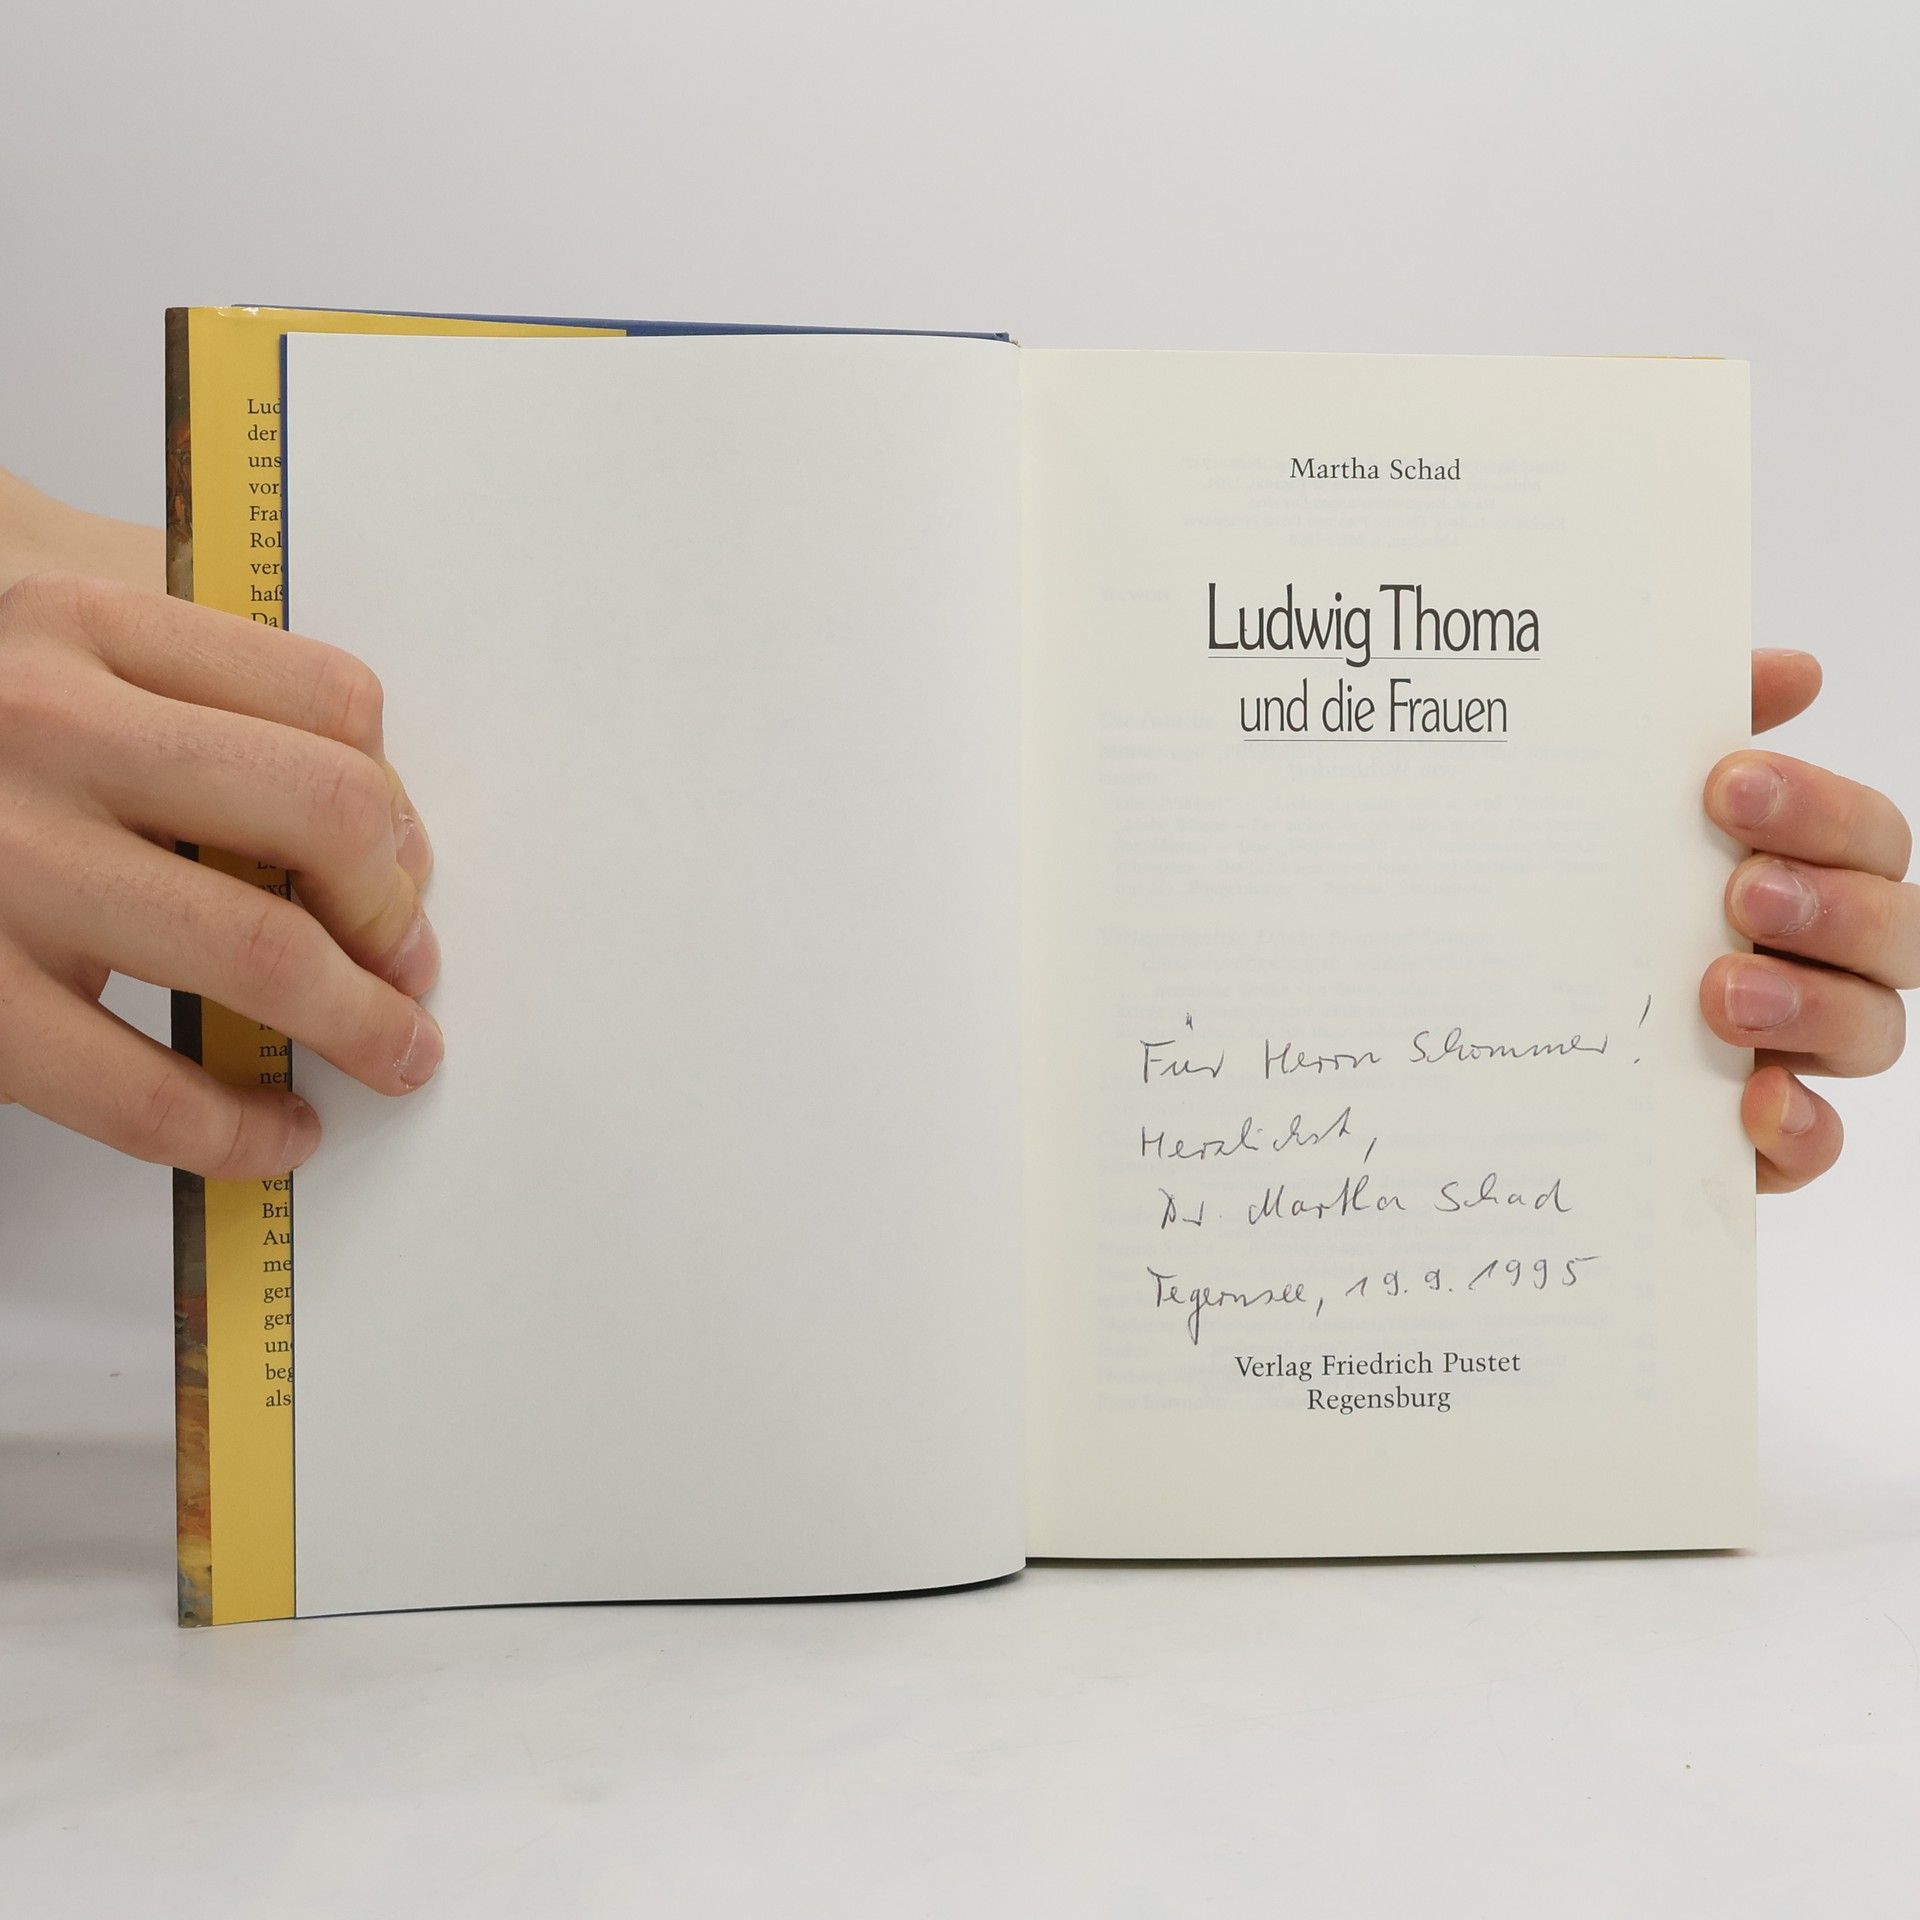 Lud
der
uns
vor
Frau
Rol
vere
haß
Da
exo
ma
ner
ver
Bri
Au
me
ger
ger
und
beg
als
Martha Schad
Ludwig Thoma
und die Frauen
Für Herrn Schommer!
Herzlichst,
Dr. Martha Schad
Tegernsee, 19.9.1995
Verlag Friedrich Pustet
Regensburg